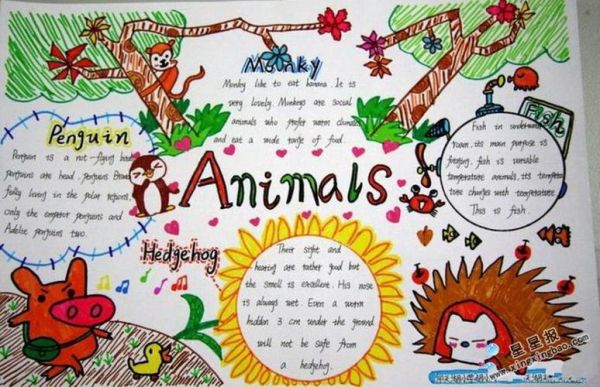 Munky
Munky like to eat banana. It is
very lovely. Munkeys are social
animals who prefer warm climate
and eat a wide range of food.
Penguin
Penguin is a not-flying bird
penguins are head. penguins
fully living in the polar regions,
only the emperor penguins and
Adelie penguins two.
Animals
Fish
Fish in underwater
roam, its main purpose is
foraging, fish is variable
temperature animals, its tempera-
ture changes with temperature
This is fish.
Hedgehog
Their sight and
hearing are rather good but
the smell is excellent. His nose
is always wet. Even a worm
hidden 3 cm under the ground
will not be safe from
a hedgehog.
星星报
www.xingxingbao.com